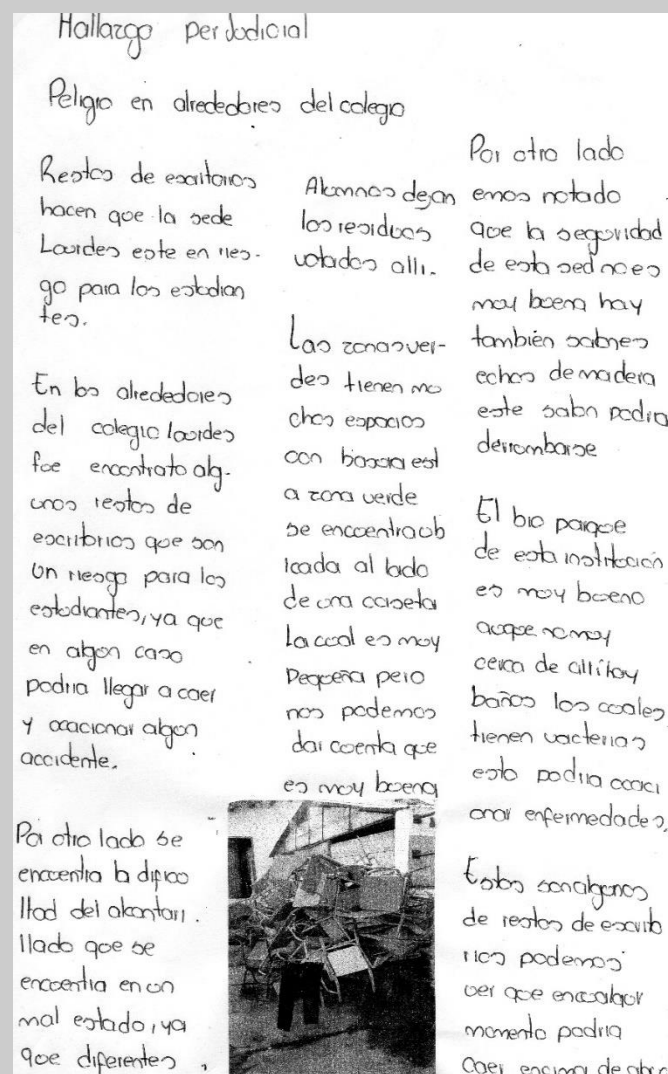 Hallazgo perJudicial
Peligro en alrededores del colegio
Restos de escritorios
hacen que la sede
Lourdes este en ries-
go para los estudian
tes.
En los alrededores
del colegio lourdes
fue encontrato alg-
unos restos de
escritorios que son
un riesgo para los
estudiantes, ya que
en algun caso
podria llegar a caer
y ocacionar algun
accidente.
Por otro lado se
encuentra la dificu
ltad del alcantari.
llado que se
encuentra en un
mal estado, ya
que diferentes
Alumnos dejan
los residuos
votados alli.
Las zonas ver-
des tienen mu
chos espacios
con basura est
a zona verde
se encuentra ub
icada al lado
de una caseta
La cual es muy
Pequeña pero
nos podemos
dar cuenta que
es muy buena
Por otro lado
emos notado
que la seguridad
de esta sed no es
muy buena hay
también salones
echos de madera
este salon podria
derrumbarse
El bio parque
de esta institucion
es muy bueno
auque
cerca de
baños los cuales
tienen vacterias
esto podria ocaci
onar enfermedades.
Estos son algunos
de restos de escrito
rios podemos
ver que encualqur
momento podria
caer encima de